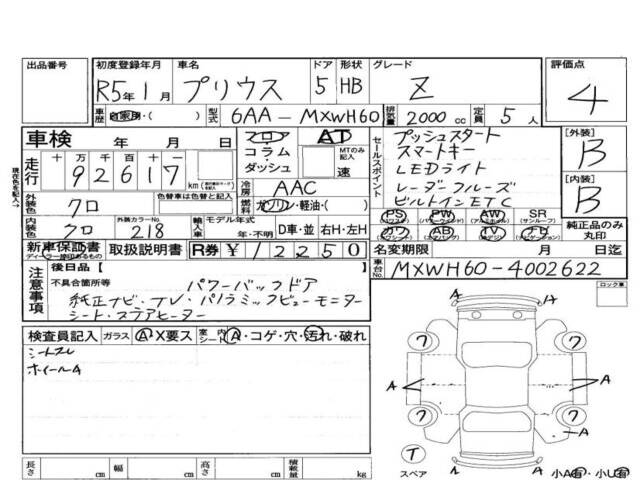 出品番号 初度登録年月 車名 ドア 形状 グレード 評価点
R5年1月 プリウス 5 HB Z 4
車歴 自家用・( ) 型式 6AA-MXWH60 排気量 2000cc 定員 5人
車検 年 月 日 フロア AT
コラム・ MTのみ記入
ダッシュ 速
走行 十 万 千 百 十 一
92617 km
冷房 AAC
燃料 ガソリン・軽油・( )
セールスポイント
プッシュスタート
スマートキー
LEDライト
レーダークルーズ
ビルトインETC
[外装] B
[内装] B
現在色を記入→
外装色 クロ 色替車は色替と記入
内装色 クロ 外装カラーNo. 218
輸入車 モデル年式 年・不明 D車・並 右H・左H
PS PW AW SR
(パワステ) (パワーウインド) (アルミホイル) (サンルーフ)
カワ AB TV ナビ
(エアバッグ)
純正品のみ丸印
新車保証書 取扱説明書 R券 ¥12250 名変期限 月 日迄
車台No. MXWH60-4002622
注意事項
後日品【 】
不具合箇所等 パワーバックドア
純正ナビ・TV・パノラミックビューモニター
シート・ステアヒーター
ロック車
検査員記入 ガラス A・X要ス 室内 シート A・コゲ・穴・汚れ・破れ
シートスレ
ホイールA
A A
ワ ワ
A A
ワ ワ
A
T
スペア
A A
小A有・小U有
長さ cm 幅 cm 高さ cm 積載量 kg